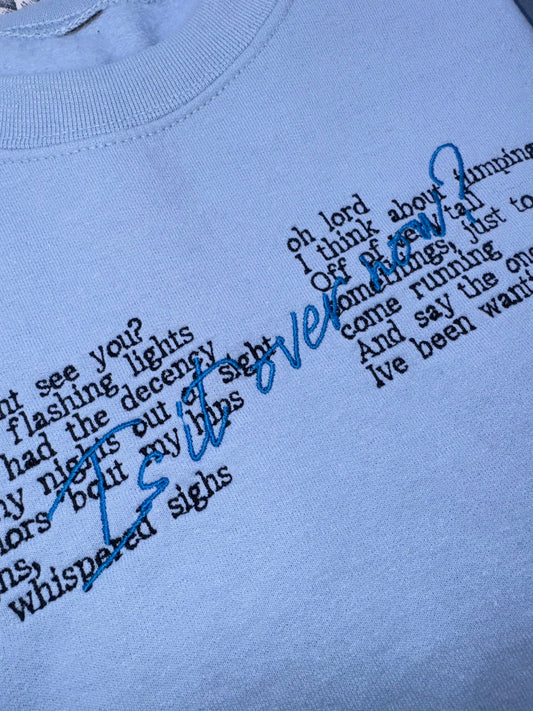 see you?
flashing lights
had the decency
nights out of sight
bout my hips
whispered sighs
Is it over now?
oh lord
I think about jumping
Off of very tall
somethings, just to
come running
And say the one
Ive been want